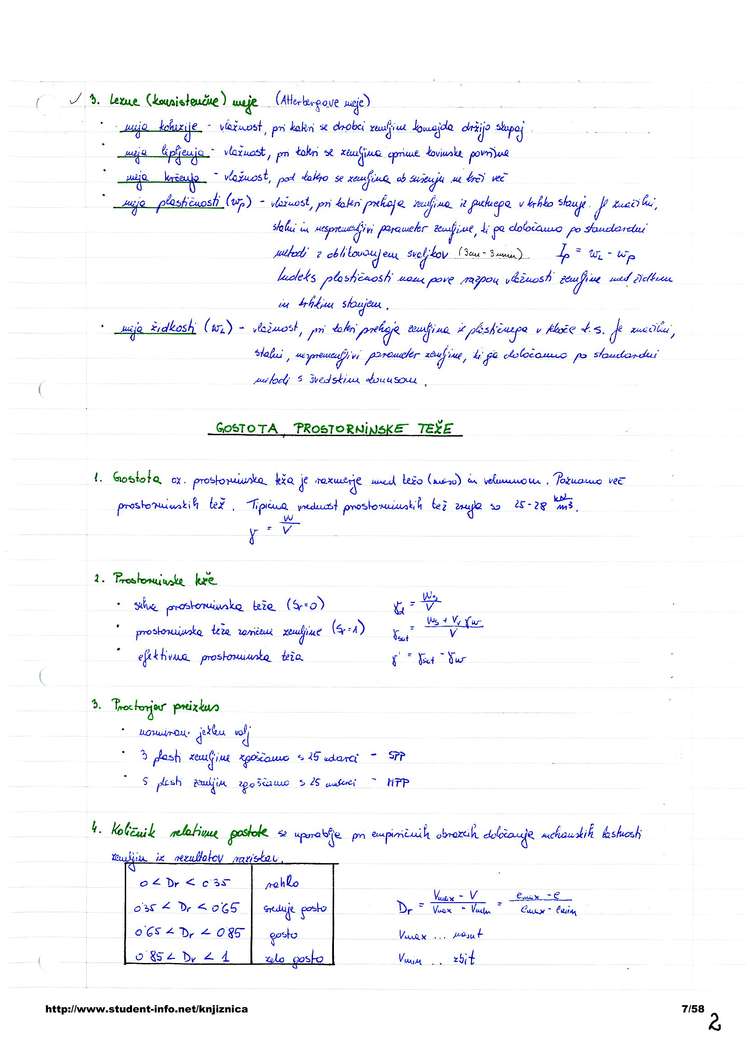 ✓ 3. Lezne (konsistenčne) meje (Atterbergove meje)
· meja kohezije - vlažnost, pri kakri se drobci zemljine komajda držijo skupaj
· meja lepljenja - vlažnost, pri kakri se zemljina oprime kovinske površine
· meja krčenja - vlažnost, pod kakro se zemljina ob sušenju ne krči več
· meja plastičnosti (wp) - vlažnost, pri kakri prehaja zemljina iz gnetnega v krhko stanje. Je značilni,
stalni in nespremenljivi parameter zemljine, ki ga določamo po standardni
metodi z oblikovanjem svaljkov (3cm - 3mm) Ip = wL - wp
Indeks plastičnosti nam pove razpon vlažnosti zemljine med židkim
in krhkim stanjem.
· meja židkosti (wL) - vlažnost, pri kakri prehaja zemljina iz plastičnega v tekoče t.s. Je značilni,
stalni, nespremenljivi parameter zemljine, ki ga določamo po standardni
metodi s švedskim konusom.
GOSTOTA, PROSTORNINSKE TEŽE
1. Gostota oz. prostorninska teža je razmerje med težo (maso) in volumnom. Poznamo več
prostorninskih tež. Tipična vrednost prostorninskih tež zrnja so 25-28 kN/m³.
γ = W/V
2. Prostorninske teže
· suha prostorninska teža (Sr=0) γd = Ws/V
· prostorninska teža zasičene zemljine (Sr=1) γsat = Ws + Vv γw/V
· efektivna prostorninska teža γ' = γsat - γw
3. Proctorjev preizkus
· normiran ježken valj
· 3 plasti zemljine zgoščamo s 25 udarci - SPP
· 5 plasti zemljin zgoščamo s 25 udarci - MPP
4. Količnik relativne gostote se uporablja pri empiričnih obrazcih določanja mehanskih lastnosti
zemljin iz rezultatov raziskav.
0 < Dr < 0'35 rahlo
0'35 < Dr < 0'65 srednje gosto
0'65 < Dr < 0'85 gosto
0'85 < Dr < 1 zelo gosto
Dr = Vmax - V/Vmax - Vmin = emax - e/emax - emin
Vmax ... nasut
Vmin .. zbit
http://www.student-info.net/knjiznica 7/58
2